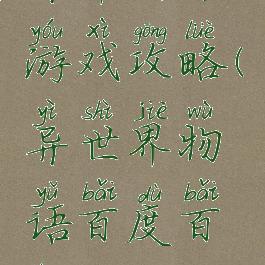 yóu xì gōng lüè
游戏攻略(
yì shì jiè wù
异世界物
yǔ bǎi dù bǎi
语百度百